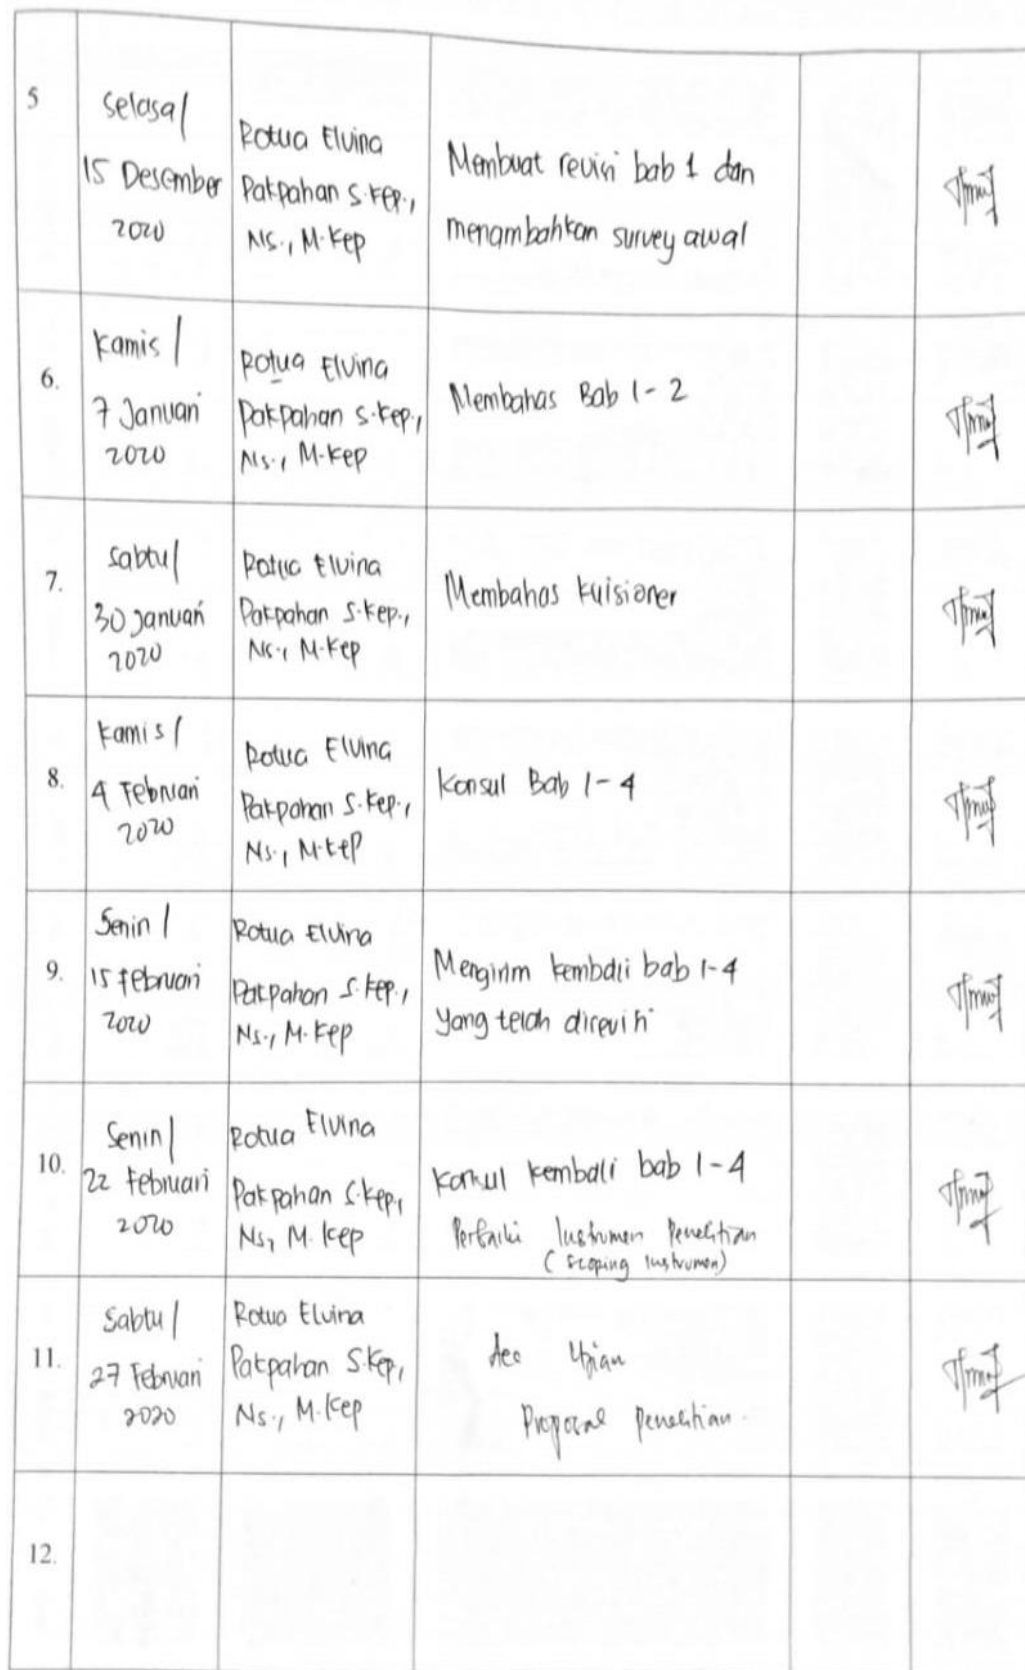 5
Selasa/
15 Desember
2020
Rotua Elvina
Pakpahan S.Kep.,
Ns., M.Kep
Membuat revisi bab 1 dan
menambahkan survey awal
6.
Kamis /
7 Januari
2020
Rotua Elvina
Pakpahan S.Kep.,
Ns., M.Kep
Membahas Bab 1-2
7.
Sabtu/
30 Januari
2020
Rotua Elvina
Pakpahan S.Kep.,
Ns., M.Kep
Membahas kuisioner
8.
Kamis /
4 Februari
2020
Rotua Elvina
Pakpahan S.Kep.,
Ns., M.Kep
Konsul Bab 1-4
9.
Senin /
15 Februari
2020
Rotua Elvina
Pakpahan S.Kep.,
Ns., M.Kep
Mengirim kembali bab 1-4
yang telah direvisi
10.
Senin/
22 Februari
2020
Rotua Elvina
Pakpahan S.Kep,
Ns, M.Kep
Konsul kembali bab 1-4
Perbaiki Instrumen Penelitian
(scoping instrumen)
11.
Sabtu/
27 Februari
2020
Rotua Elvina
Pakpahan S.Kep,
Ns., M.Kep
Acc Ujian
Proposal Penelitian.
12.